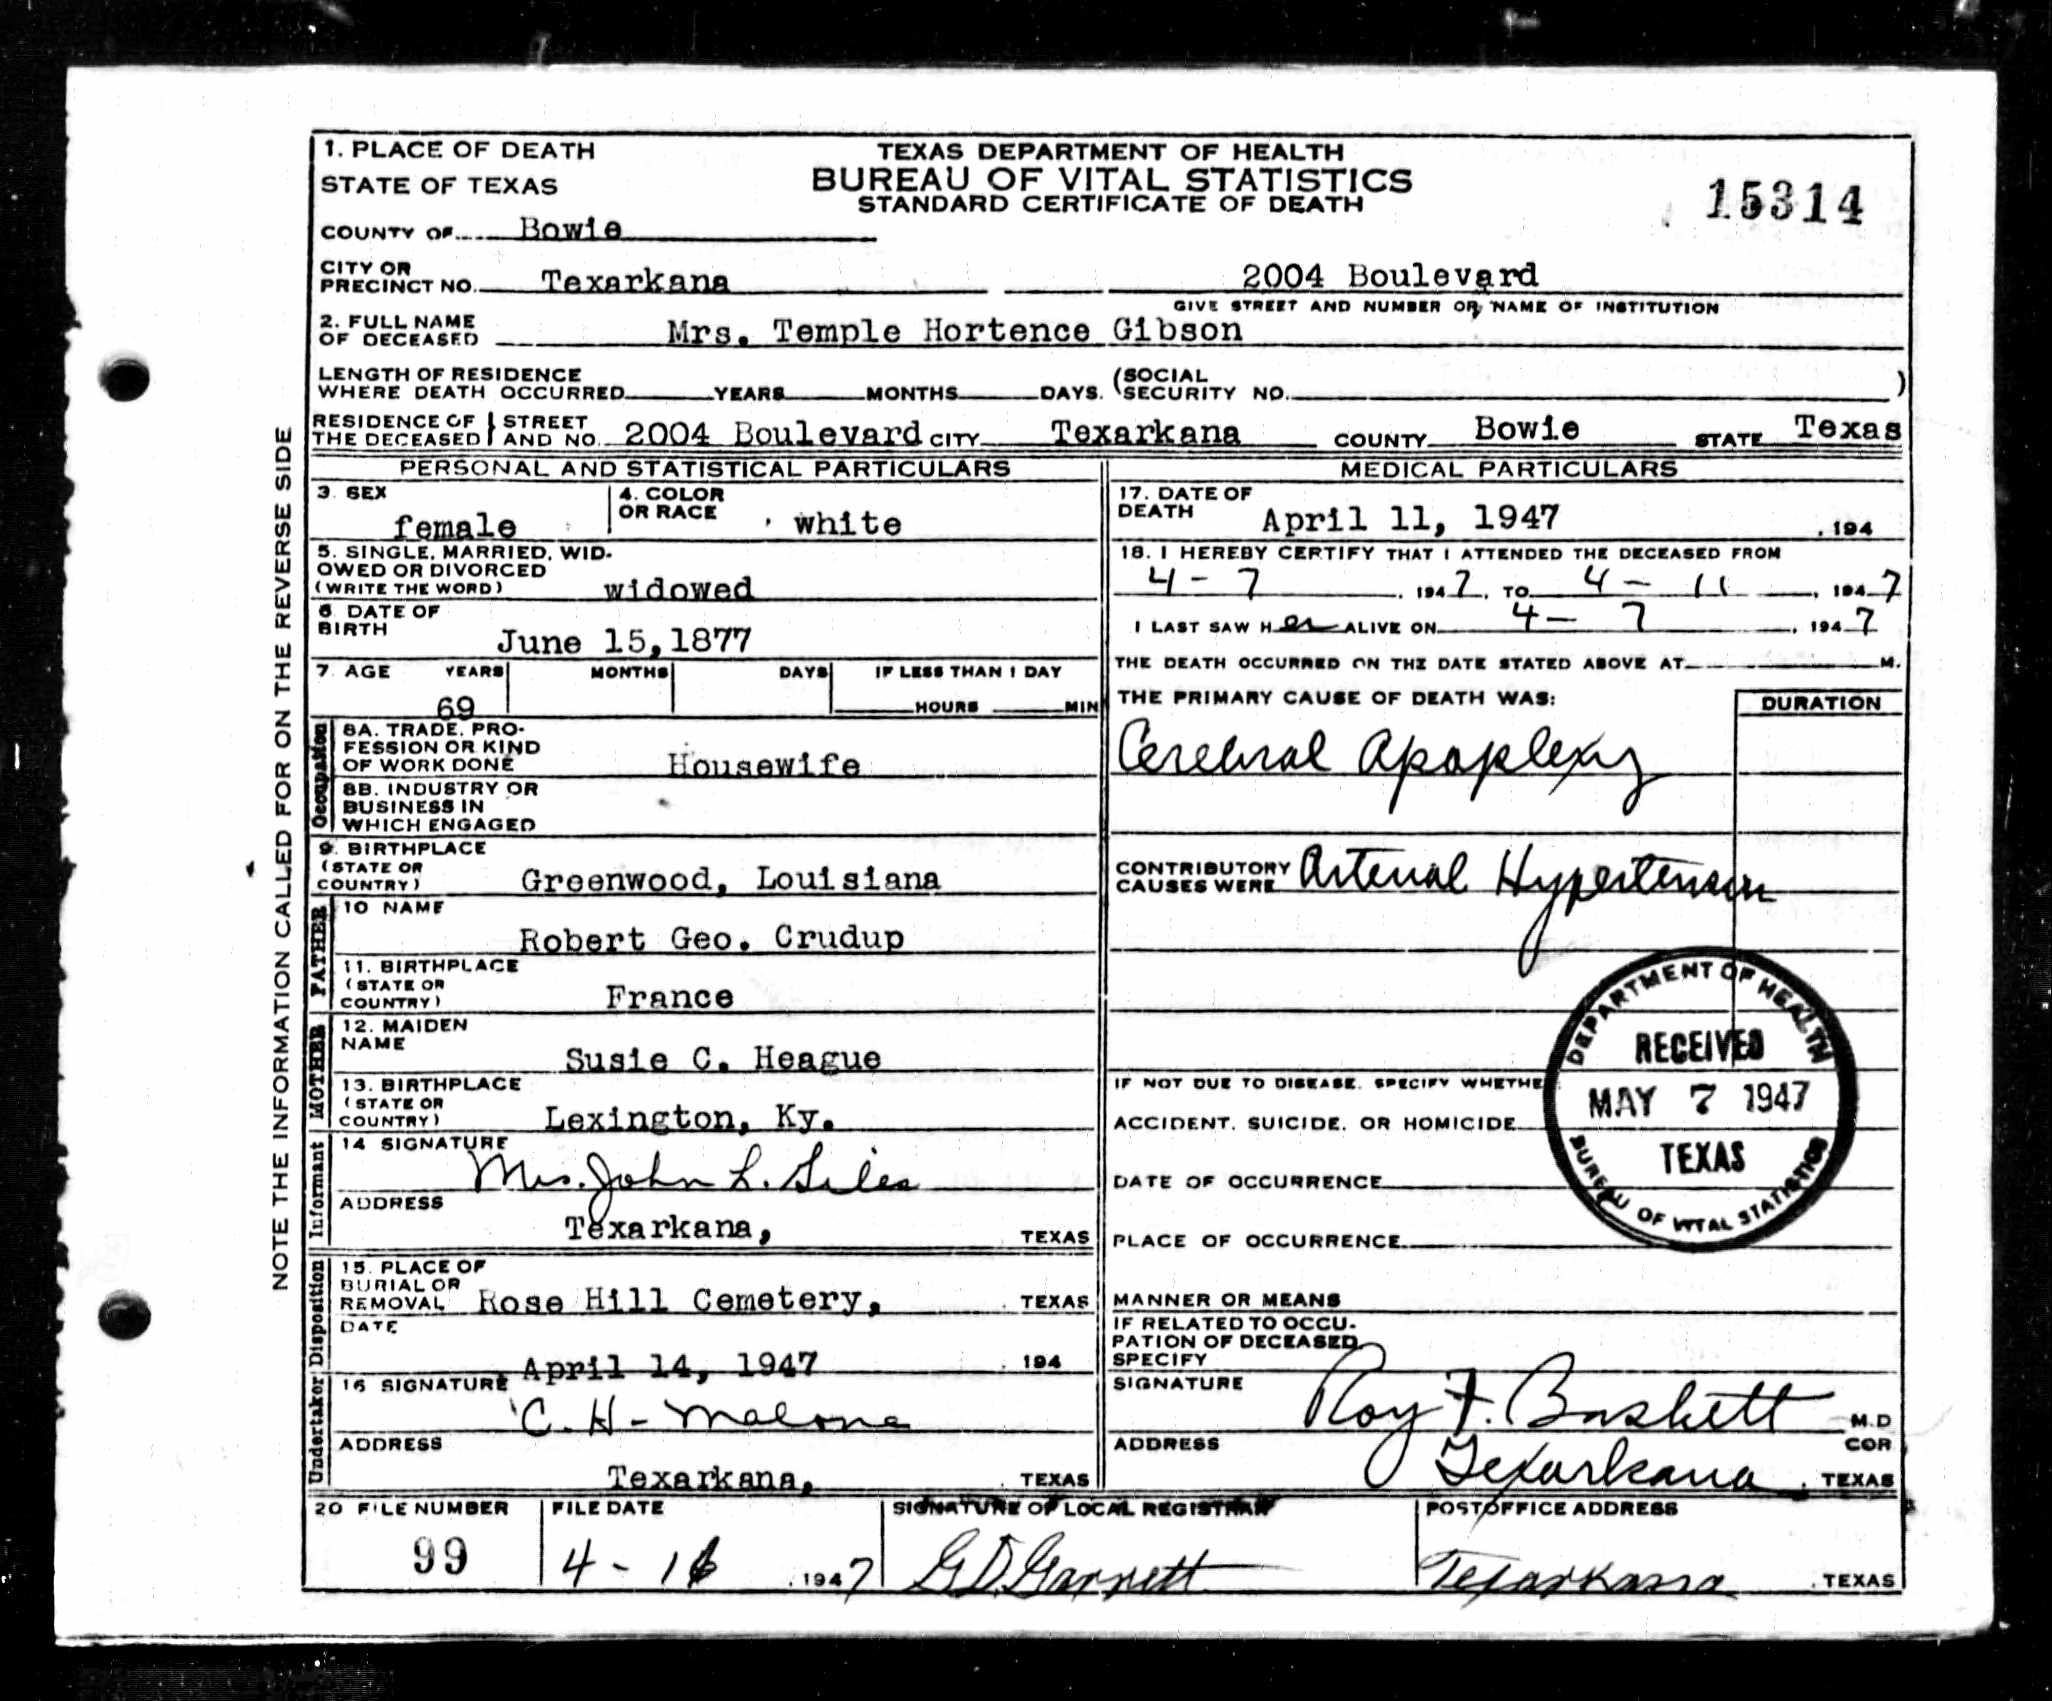 1. PLACE OF DEATH
STATE OF TEXAS
TEXAS DEPARTMENT OF HEALTH
BUREAU OF VITAL STATISTICS
STANDARD CERTIFICATE OF DEATH
15314
COUNTY OF Bowie
CITY OR PRECINCT NO. Texarkana 2004 Boulevard
GIVE STREET AND NUMBER OR NAME OF INSTITUTION
2. FULL NAME OF DECEASED Mrs. Temple Hortence Gibson
LENGTH OF RESIDENCE WHERE DEATH OCCURRED YEARS MONTHS DAYS. (SOCIAL SECURITY NO. )
RESIDENCE OF THE DECEASED STREET AND NO. 2004 Boulevard CITY Texarkana COUNTY Bowie STATE Texas
PERSONAL AND STATISTICAL PARTICULARS
3. SEX female
4. COLOR OR RACE white
5. SINGLE, MARRIED, WIDOWED OR DIVORCED
(WRITE THE WORD) widowed
6. DATE OF BIRTH June 15,1877
7. AGE YEARS MONTHS DAYS IF LESS THAN 1 DAY
69 HOURS MIN
Occupation
8A. TRADE, PROFESSION OR KIND OF WORK DONE Housewife
8B. INDUSTRY OR BUSINESS IN WHICH ENGAGED
9. BIRTHPLACE (STATE OR COUNTRY) Greenwood, Louisiana
FATHER
10 NAME Robert Geo. Crudup
11. BIRTHPLACE (STATE OR COUNTRY) France
MOTHER
12. MAIDEN NAME Susie C. Heague
13. BIRTHPLACE (STATE OR COUNTRY) Lexington, Ky.
Informant
14 SIGNATURE Mrs. John L. Giles
ADDRESS Texarkana, TEXAS
Disposition
15. PLACE OF BURIAL OR REMOVAL Rose Hill Cemetery, TEXAS
DATE April 14, 1947 194
Undertaker
16 SIGNATURE C. H- Malone
ADDRESS Texarkana, TEXAS
MEDICAL PARTICULARS
17. DATE OF DEATH April 11, 1947 , 194
18. I HEREBY CERTIFY THAT I ATTENDED THE DECEASED FROM
4 - 7 , 1947, TO 4 - 11 , 1947
I LAST SAW Her ALIVE ON 4 - 7 , 1947
THE DEATH OCCURRED ON THE DATE STATED ABOVE AT M.
THE PRIMARY CAUSE OF DEATH WAS: DURATION
Cerebral Apoplexy
CONTRIBUTORY CAUSES WERE Arterial Hypertension
IF NOT DUE TO DISEASE, SPECIFY WHETHE
ACCIDENT, SUICIDE, OR HOMICIDE
DATE OF OCCURRENCE
PLACE OF OCCURRENCE
DEPARTMENT OF HEALTH
RECEIVED
MAY 7 1947
TEXAS
BUREAU OF VITAL STATISTICS
MANNER OR MEANS
IF RELATED TO OCCUPATION OF DECEASED, SPECIFY
SIGNATURE Roy F. Baskett M.D
COR
ADDRESS Texarkana, TEXAS
20 FILE NUMBER 99
FILE DATE 4 - 16 , 1947
SIGNATURE OF LOCAL REGISTRAR G D. Garrett
POSTOFFICE ADDRESS Texarkana, TEXAS
NOTE THE INFORMATION CALLED FOR ON THE REVERSE SIDE